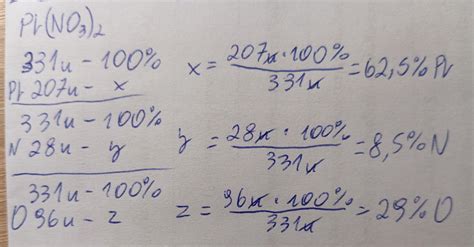 Pb(NO₃)₂
331u - 100%
Pb 207u - x
x = 207u · 100% / 331u = 62,5% Pb
331u - 100%
N 28u - y
y = 28u · 100% / 331u = 8,5% N
331u - 100%
O 96u - z
z = 96u · 100% / 331u = 29% O